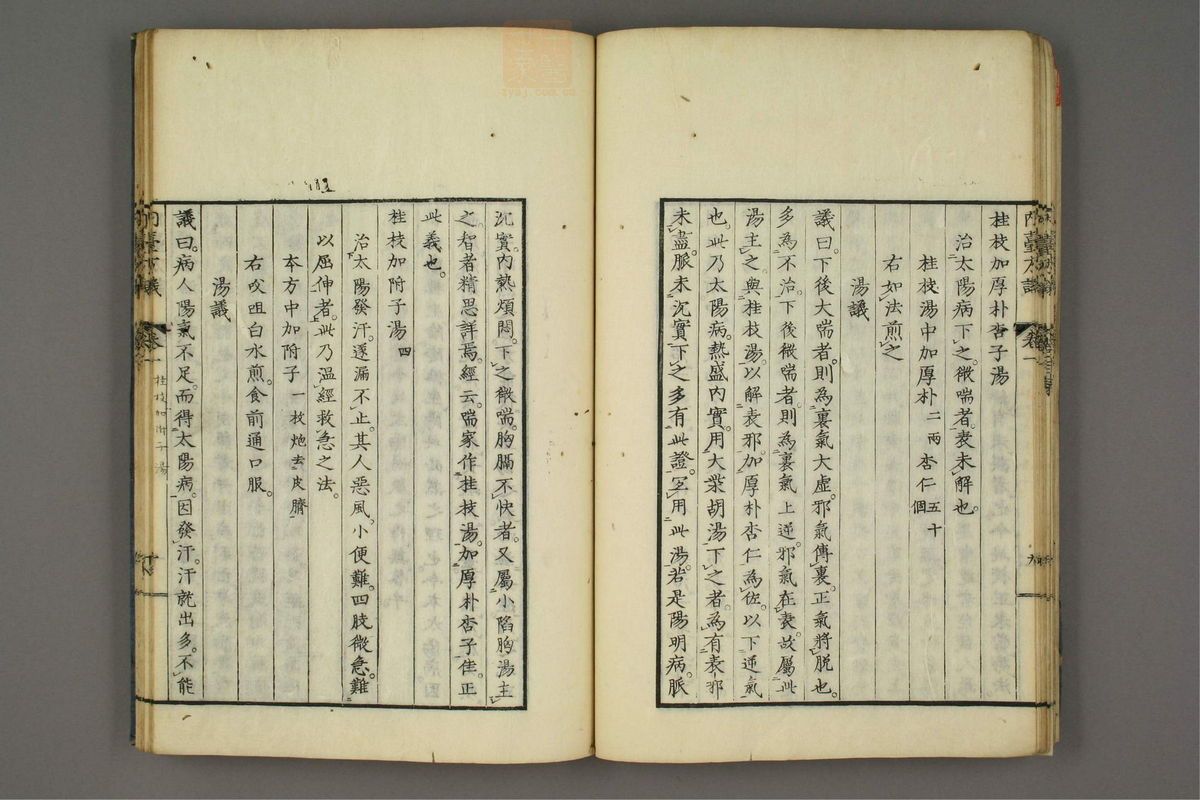 桂枝加厚朴杏子湯
治太陽病下之微喘者表未解也
桂枝湯中加厚朴二兩杏仁五十個
右如法煎之
湯議
議曰下後大喘者則為裏氣大虛邪氣傳裏正氣將脫也
多為不治下後微喘者則為裏氣上逆邪氣在表故屬此
湯主之與桂枝湯以解表邪加厚朴杏仁為佐以下逆氣
也此乃太陽病熱盛內實用大柴胡湯下之者為有表邪
未盡脈未沉實下之多有此證宜用此湯若是陽明病脈
沉實內熱煩悶下之微喘胸膈不快者又屬小陷胸湯主
之智者精思詳焉經云喘家作桂枝湯加厚朴杏子佳正
此義也
桂枝加附子湯 四
治太陽發汗遂漏不止其人惡風小便難四肢微急難
以屈伸者此乃溫經救急之法
本方中加附子一枚炮去皮臍
右㕮咀白水煎食前通口服
湯議
議曰病人陽氣不足而得太陽病因發汗汗就出多不能
內臺方議
卷一
桂枝加附子湯